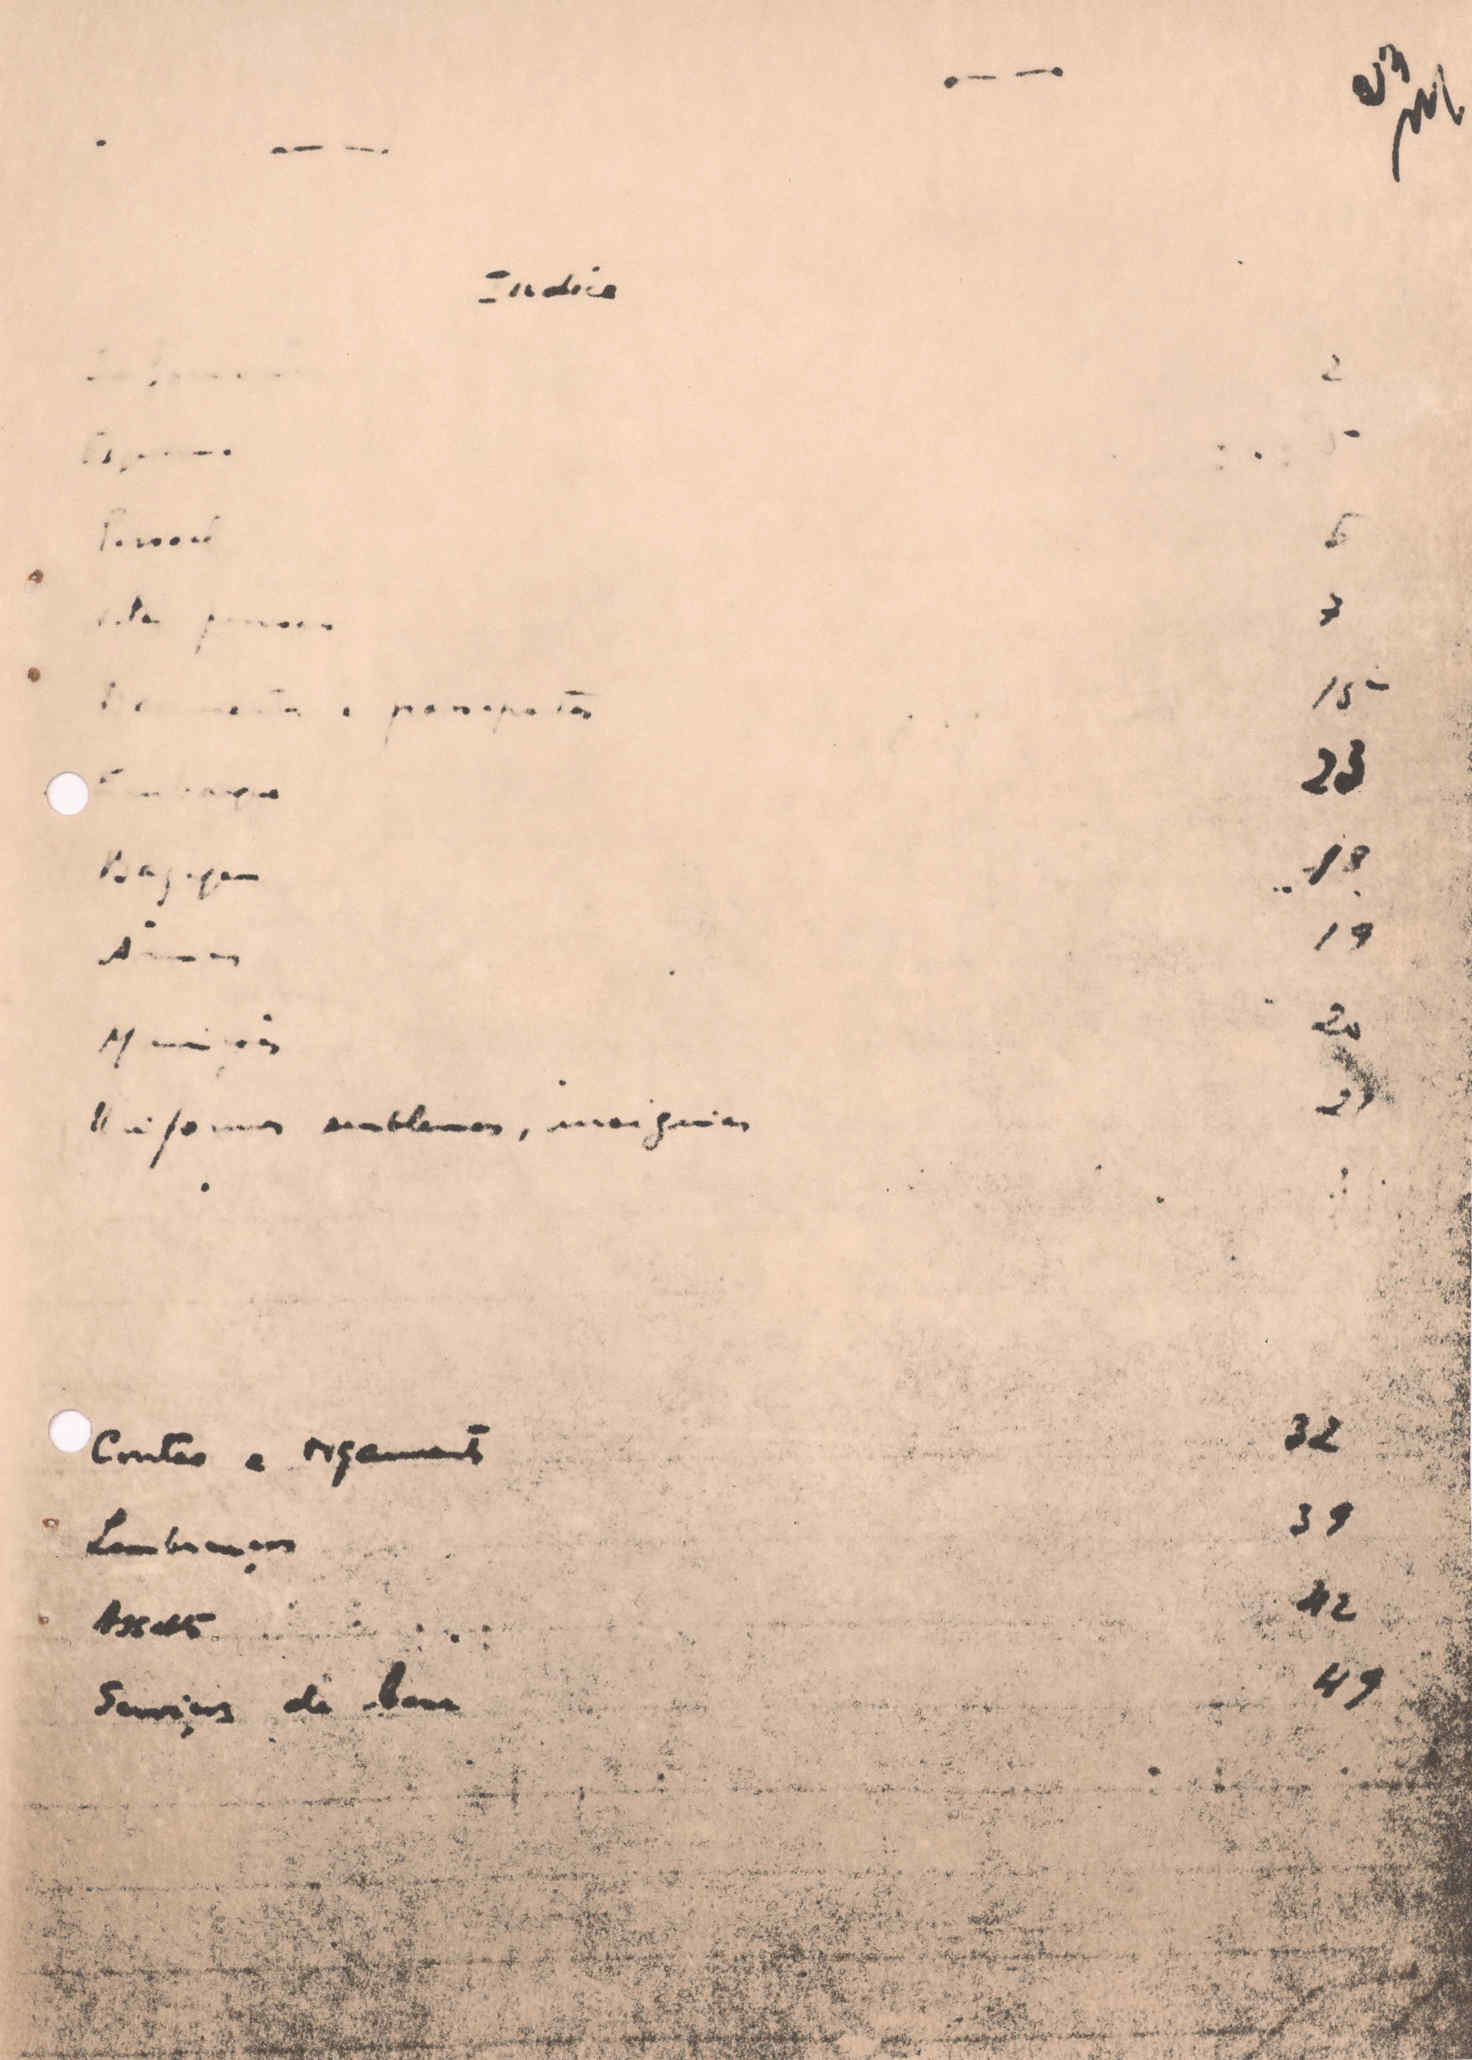 Indice
2
5
Pessoal 6
7
e passaportes 15
Embarque 23
Bagagem 18
Armas 19
Munições 20
Uniformes emblemas, insignias 21
Contas e orçamento 32
Lembranças 39
Assalto 42
Serviços de base 49